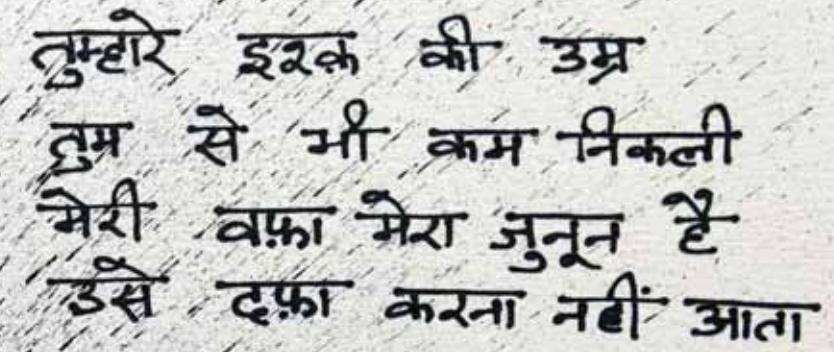 तुम्हारे इश्क़ की उम्र
तुम से भी कम निकली
मेरी वफ़ा मेरा जुनून है
उसे दफ़ा करना नहीं आता